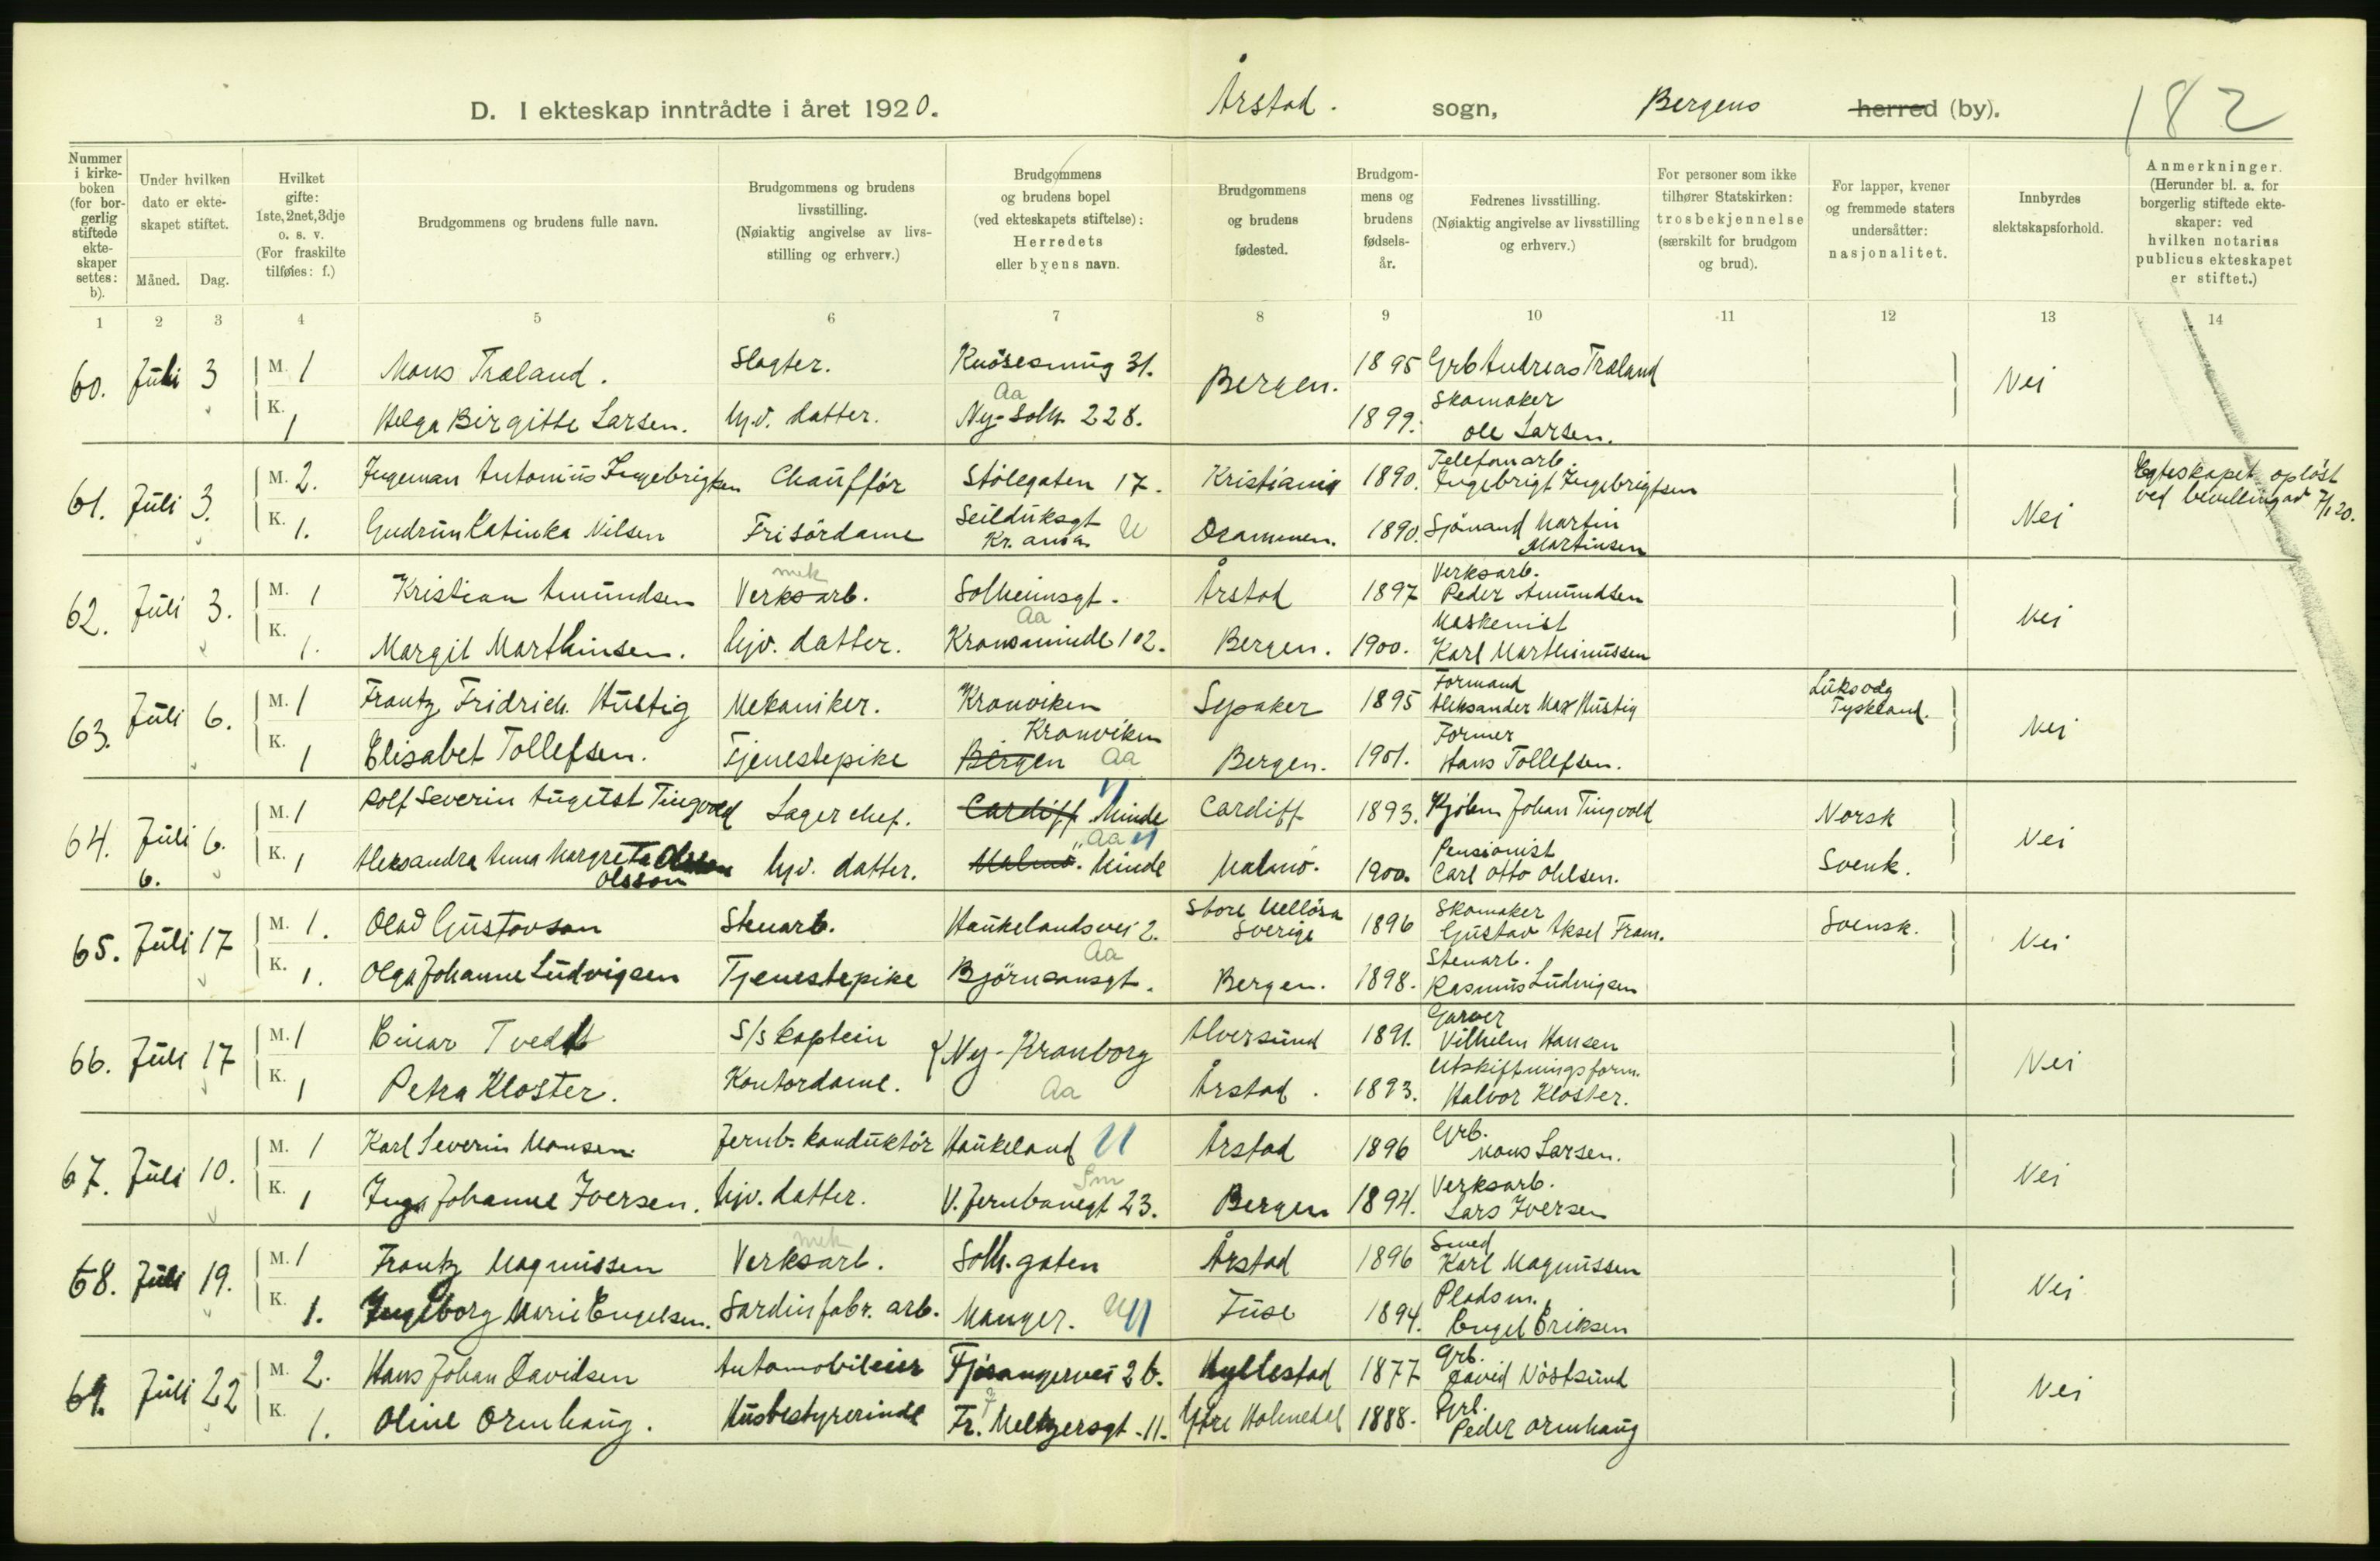 D. I ekteskap inntrådte i året 1920. Årstad. sogn, Bergens herred (by). 182
Nummer i kirkeboken (for borgerlig stiftede ekteskaper settes: b).
Under hvilken dato er ekteskapet stiftet.
Måned. Dag.
Hvilket gifte: 1ste, 2net, 3dje o. s. v. (For fraskilte tilføies: f.)
Brudgommens og brudens fulle navn.
Brudgommens og brudens livsstilling. (Nøiaktig angivelse av livsstilling og erhverv.)
Brudgommens og brudens bopel (ved ekteskapets stiftelse): Herredets eller byens navn.
Brudgommens og brudens fødested.
Brudgommens og brudens fødselsår.
Fedrenes livsstilling. (Nøiaktig angivelse av livsstilling og erhverv.)
For personer som ikke tilhører Statskirken: trosbekjennelse (særskilt for brudgom og brud).
For lapper, kvener og fremmede staters undersåtter: nasjonalitet.
Innbyrdes slektskapsforhold.
Anmerkninger. (Herunder bl. a. for borgerlig stiftede ekteskaper: ved hvilken notarius publicus ekteskapet er stiftet.)
1 2 3 4 5 6 7 8 9 10 11 12 13 14
60. Juli 3 M. 1 Mons Træland. Slagter. 31. Bergen. 1895 Grb Andreas Træland Nei
K. 1 Helga Birgitte Larsen. hjv. datter. Aa Ny-Solh. 228. 1899. Skomaker Ole Larsen.
61. Juli 3. M. 2. Ingeman Antonius Ingebrigtsen Chauffør Stølegaten 17. Kristiania 1890. Telefonarb. Ingebrigt Ingebrigtsen Nei Egteskapet opløst ved bevilling av 7/1 20.
K. 1. Gudrun Katinka Nilsen Frisørdame Seilduksgt Kr. ania U Drammen. 1890. Sjømand Martin Martinsen
62. Juli 3. M. 1 Kristian Amundsen mek Verksarb. Solheimsgt. Årstad 1897 Verksarb. Peder Amundsen Nei
K. 1. Margit Marthinsen. hjv. datter. Aa Kronsminde 102. Bergen. 1900. Maskenist Karl Marthinussen
63. Juli 6. M. 1 Frantz Fridrich Hustig Mekaniker. Kronviken 1895 Formand Aleksander Max Hustig Tyskland. Nei
K. 1 Elisabet Tollefsen. Tjenestepike Bergen Kronviken Aa Bergen. 1901. Former Hans Tollefsen.
64. Juli 6. M. 1 Rolf Severin August Tingvold Lagerchef. Cardiff Minde Cardiff 1893. Johan Tingvold Norsk Nei
6. K. 1 Aleksandra Anna Margreta Olsson hjv. datter. Malmø. Minde Aa Malmø. 1900. Pensionist Carl Otto Ohlsen. Svensk.
65. Juli 17 M. 1. Olav Gustavson Stenarb. Haukelandsvei 2. Store Mellösa Sverige 1896 Skomaker Gustav Aksel Fram. Svensk. Nei
K. 1. Olga Johanne Ludvigsen Tjenestepike Aa Bjørnsonsgt. Bergen. 1898. Stenarb. Rasmus Ludvigsen
66. Juli 17 M. 1 Einar Tvedt S/s kaptein Ny-Kronborg Alversund 1891. Garver Vilhelm Hansen Nei
K. 1 Petra Kloster. Kontordame. Aa Årstad. 1893. Utskiftningsform. Halvor Kloster.
67. Juli 10. M. 1 Karl Severin Monsen. Jernb. konduktør Haukeland U Årstad 1896 Grb. Mons Larsen. Nei
K. 1 Inga Johanne Iversen. hjv. datter. V. Jernbanegt 23. Bergen 1894. Verksarb. Lars Iversen
68. Juli 19. M. 1 Frantz Magnussen mek Verksarb. Solh. gaten Årstad 1896 Smed Karl Magnussen Nei
K. 1. Ingeborg Marie Engelsen. Sardinfabr. arb. Manger. U Fuse 1894. Pladsm. Engel Eriksen
69. Juli 22 M. 2. Hans Johan Davidsen Automobileier Fjøsangervei 26. Hyllestad 1877 Grb. David Nøstsund Nei
K. 1. Oline Ormhaug. Husbestyrerinde Fr. Meltzersgt. 11. Ytre Holmedal 1888. Grb. Peder Ormhaug